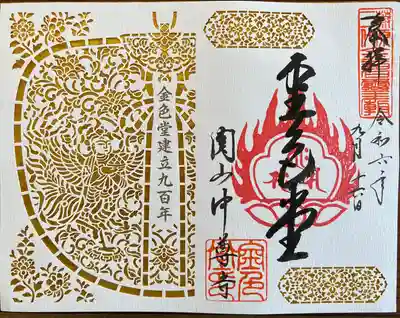 奉拝
令和六年
九月十六日
金色堂
関山中尊寺
金色堂建立九百年